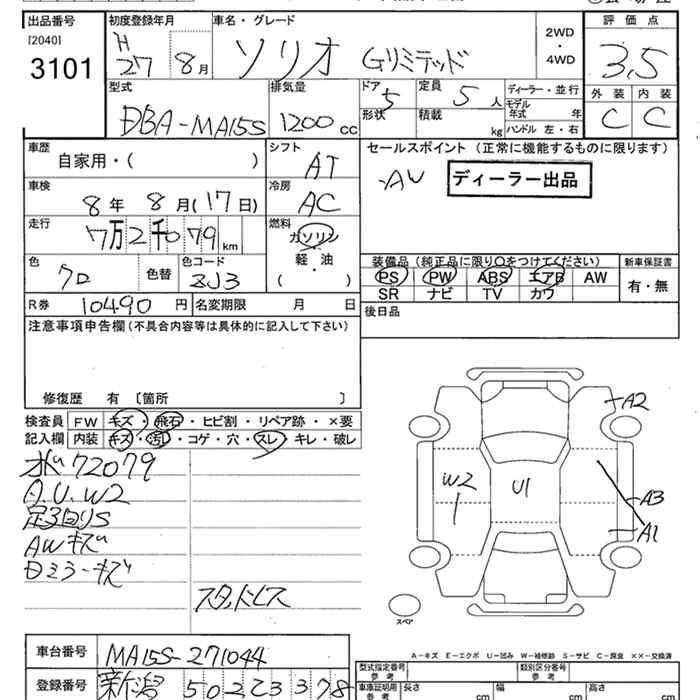 出品番号 初度登録年月 車名・グレード 2WD ・ 4WD 評価点
[2040]
3101 H 27 8月 ソリオ Gリミテッド 3.5
型式 排気量 ドア 5 定員 5人 ディーラー・並行 外装 内装
DBA-MA15S 1200cc 形状 積載 kg モデル年式 年 C C
ハンドル 左・右
車歴 自家用・( ) シフト AT セールスポイント (正常に機能するものに限ります)
車検 8年 8月(17日) 冷房 AC AW ディーラー出品
走行 7万2千079km 燃料 ガソリン
軽・油
( )
色 クロ 色替 色コード ZJ3 装備品 (純正品に限り○をつけてください) 新車保証書
PS PW ABS エアB AW 有・無
SR ナビ TV カワ
R券 10490円 名変期限 月 日 後日品
注意事項申告欄(不具合内容等は具体的に記入して下さい)
修復歴 有 〔箇所 〕
検査員 FW キズ・飛石・ヒビ割・リペア跡・×要
記入欄 内装 キズ・汚れ・コゲ・穴・スレ・キレ・破レ
72079
A.U.W2
AWキズ
Dミラーキズ
スタッドレス
A2
W2 U1
A3
A1
スペア
A-キズ E-エクボ U-凹み W-補修跡 S-サビ C-腐食 XX-交換済
車台番号 MA15S-271044
登録番号 新潟 502 3378
型式指定番号 参考 類別区分番号 参考
車庫証明用 参考 長さ cm 幅 cm 高さ cm